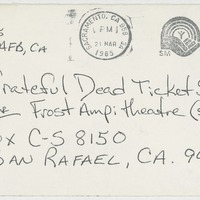 S
AFB, CA
SACRAMENTO, CA 958
PM
21 MAR
1985
SM
rateful Dead Ticket S
Frost Ampitheatre (S
OX C-S 8150
AN RAFAEL, CA. 9